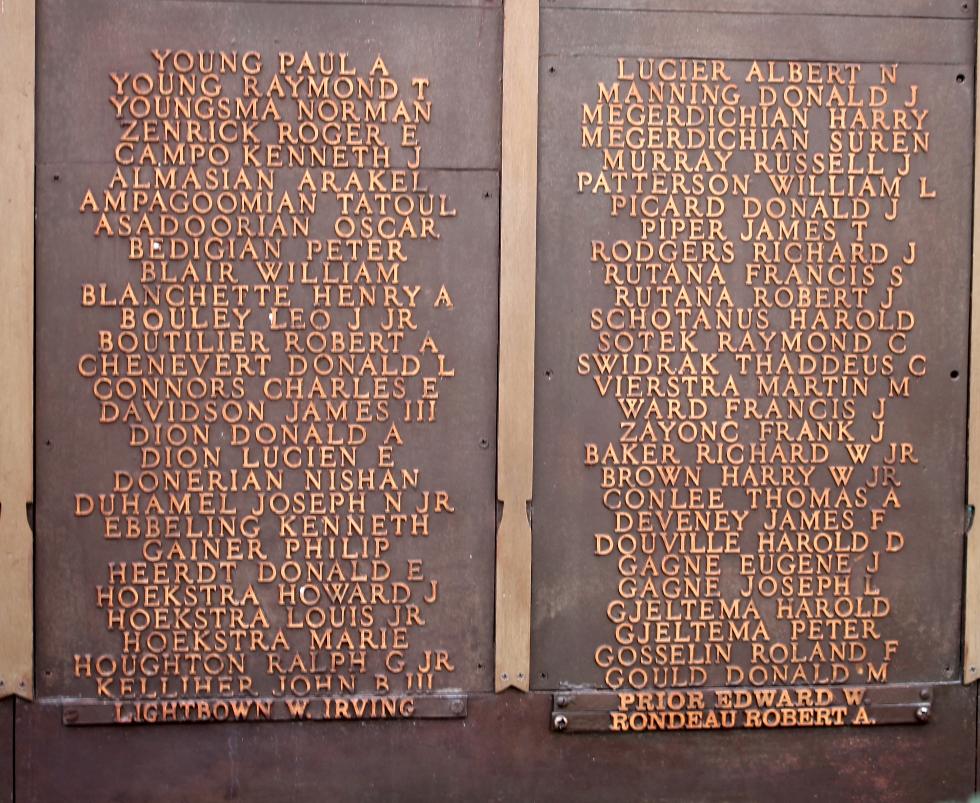 YOUNG PAUL A
YOUNG RAYMOND T
YOUNGSMA NORMAN
ZENRICK ROGER E
CAMPO KENNETH J
ALMASIAN ARAKEL
AMPAGOOMIAN TATOUL
ASADOORIAN OSCAR
BEDIGIAN PETER
BLAIR WILLIAM
BLANCHETTE HENRY A
BOULEY LEO J JR
BOUTILIER ROBERT A
CHENEVERT DONALD L
CONNORS CHARLES E
DAVIDSON JAMES III
DION DONALD A
DION LUCIEN E
DONERIAN NISHAN
DUHAMEL JOSEPH N JR
EBBELING KENNETH
GAINER PHILIP
HEERDT DONALD E
HOEKSTRA HOWARD J
HOEKSTRA LOUIS JR
HOEKSTRA MARIE
HOUGHTON RALPH G JR
KELLIHER JOHN B III
LIGHTBOWN W. IRVING
LUCIER ALBERT N
MANNING DONALD J
MEGERDICHIAN HARRY
MEGERDICHIAN SUREN
MURRAY RUSSELL J
PATTERSON WILLIAM L
PICARD DONALD J
PIPER JAMES T
RODGERS RICHARD J
RUTANA FRANCIS S
RUTANA ROBERT J
SCHOTANUS HAROLD
SOTEK RAYMOND C
SWIDRAK THADDEUS C
VIERSTRA MARTIN M
WARD FRANCIS J
ZAYONC FRANK J
BAKER RICHARD W JR
BROWN HARRY W JR
CONLEE THOMAS A
DEVENEY JAMES F
DOUVILLE HAROLD D
GAGNE EUGENE J
GAGNE JOSEPH L
GJELTEMA HAROLD
GJELTEMA PETER
GOSSELIN ROLAND F
GOULD DONALD M
PRIOR EDWARD W.
RONDEAU ROBERT A.